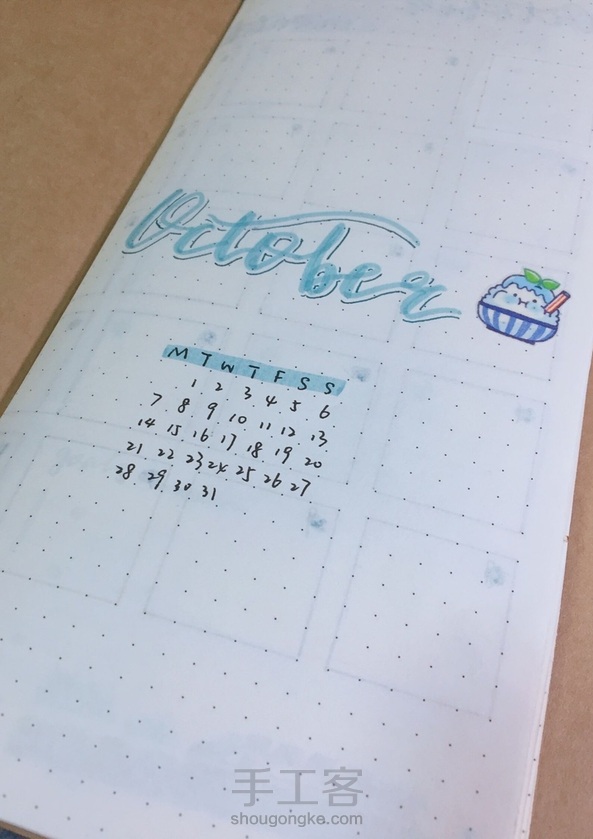 October
M T W T F S S
1 2 3 4 5 6
7 8 9 10 11 12 13
14 15 16 17 18 19 20
21 22 23 24 25 26 27
28 29 30 31
手工客
shougongke.com